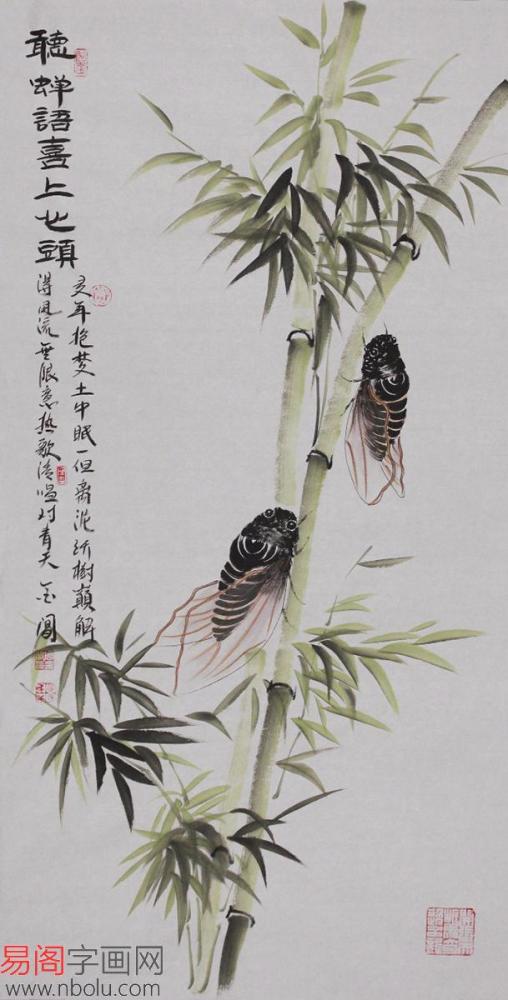 聽蝉語喜上心頭
年抱土中眠一但离泥樹巔解
得风流無限意热歌清唱对青天
易阁字画网
www.nbolu.com